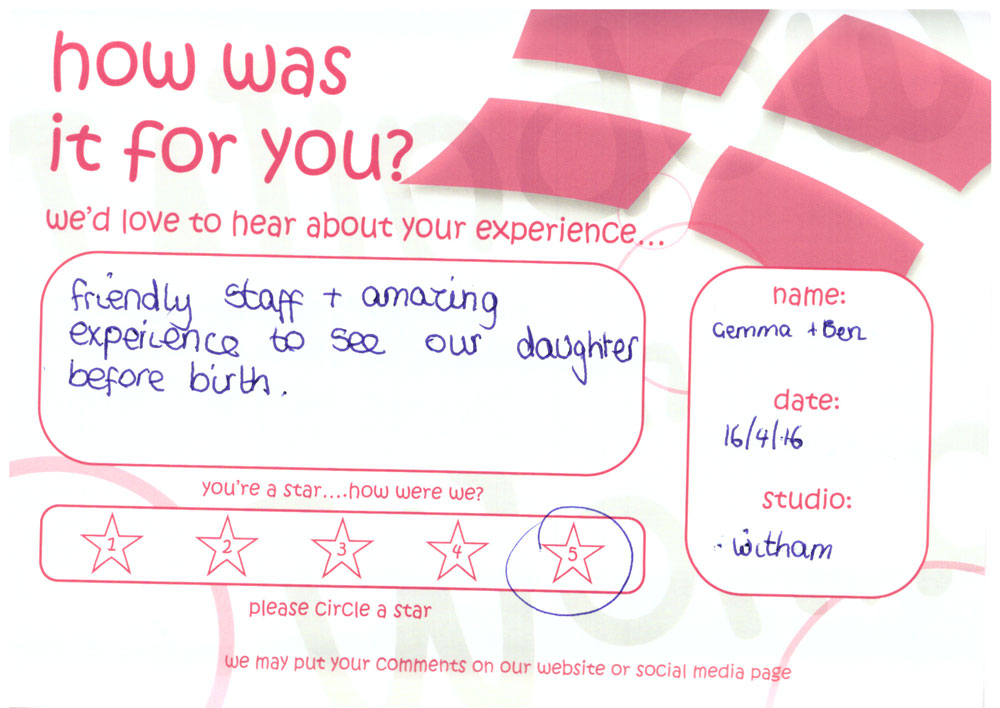 how was
it for you?
we'd love to hear about your experience...
friendly staff + amazing
experience to see our daughter
before birth.
name:
Gemma + Ben
date:
16/4/16
studio:
Witham
you're a star....how were we?
1 2 3 4 5
please circle a star
we may put your comments on our website or social media page